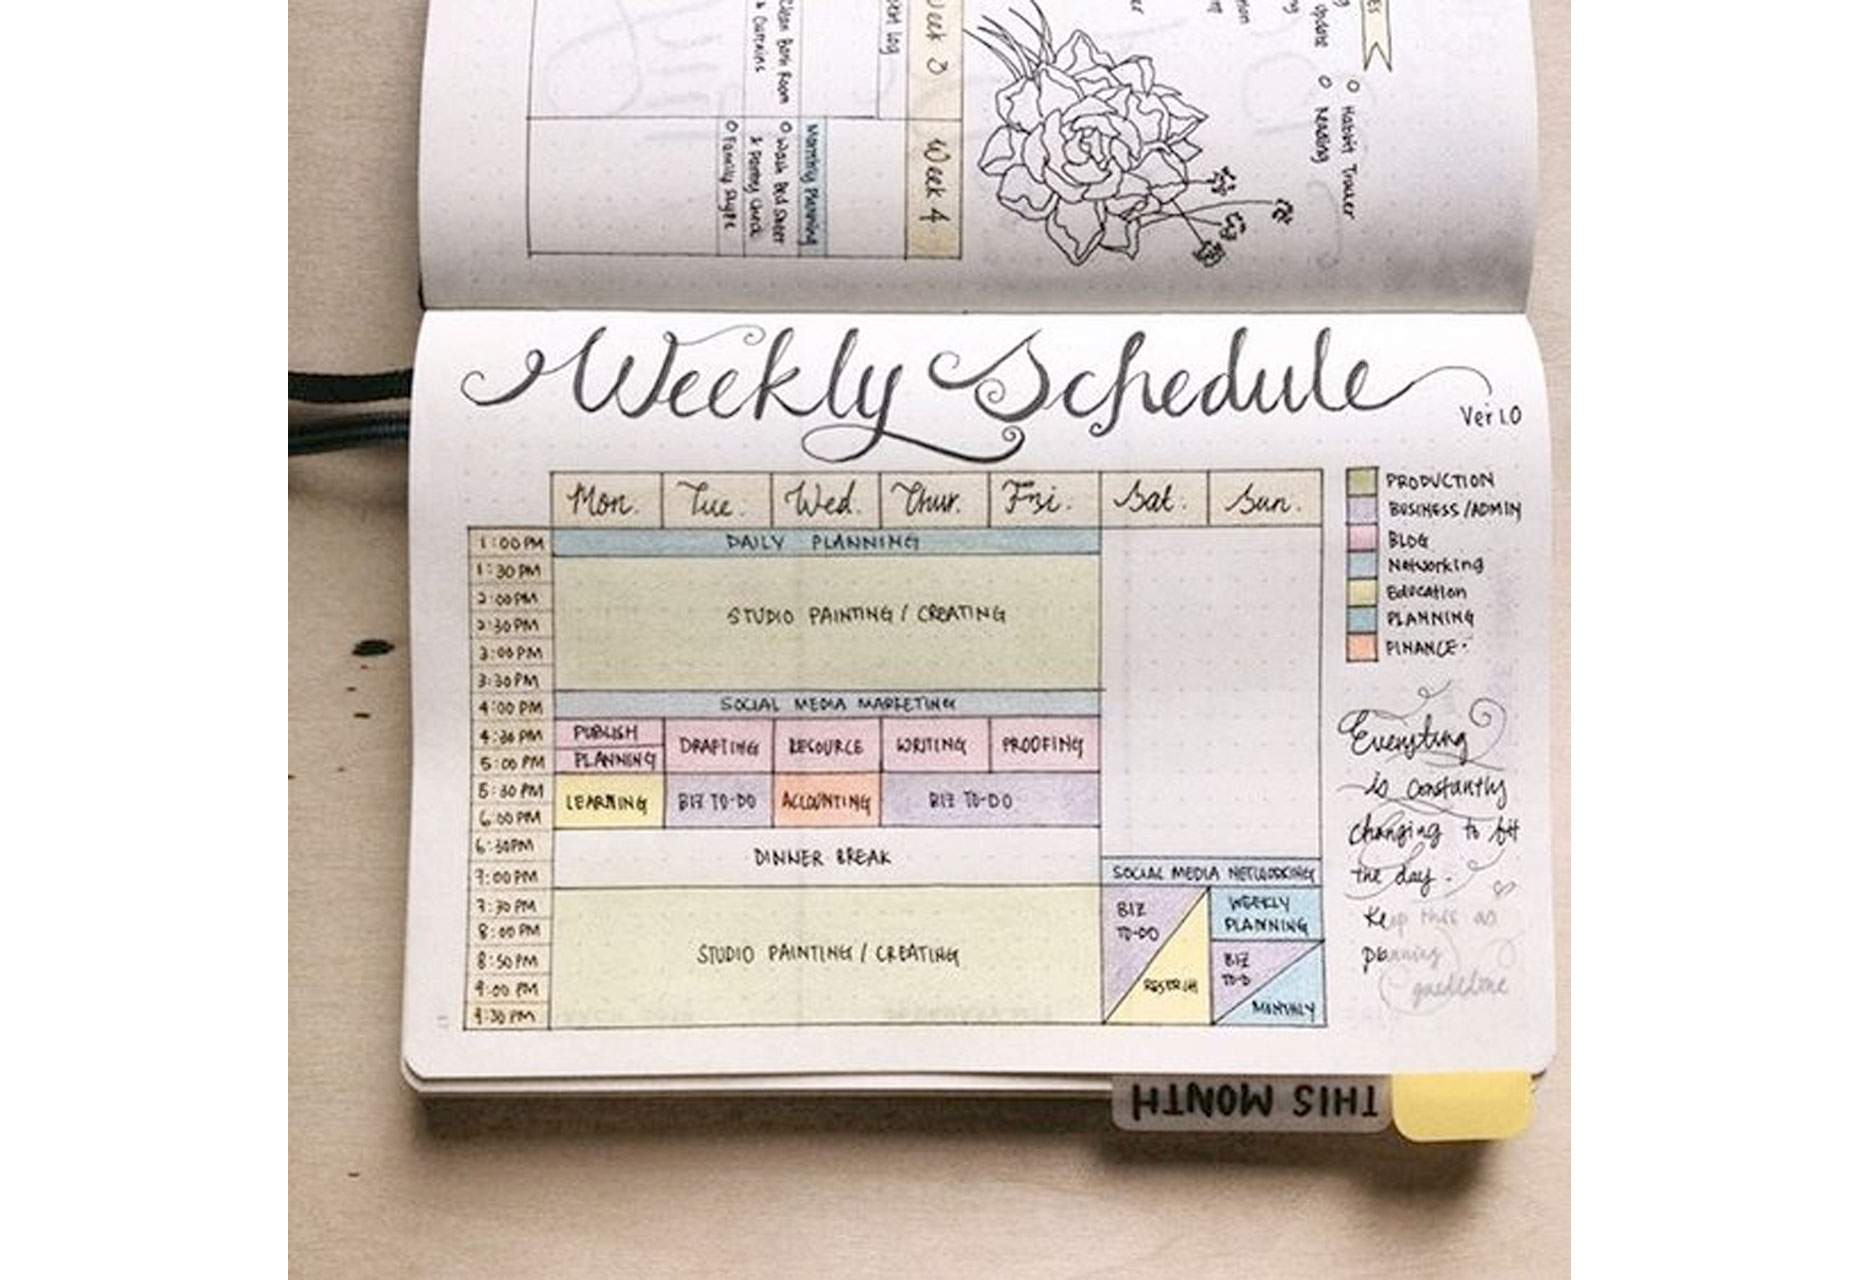 Week 3
Week 4
Monthly Planning
Wash Bed Sheet
& Pantry Check
Family Skype
Clean Bath Room
& Curtains
update
Habbit Tracker
Reading
Weekly Schedule
Ver 1.0
Mon. Tue. Wed. Thur. Fri. Sat. Sun.
1:00 PM DAILY PLANNING
1:30 PM
2:00 PM STUDIO PAINTING / CREATING
2:30 PM
3:00 PM
3:30 PM
4:00 PM SOCIAL MEDIA MARKETING
4:30 PM PUBLISH DRAFTING RESOURCE WRITING PROOFING
5:00 PM PLANNING
5:30 PM LEARNING BIZ TO-DO ACCOUNTING BIZ TO-DO
6:00 PM
6:30 PM DINNER BREAK
7:00 PM SOCIAL MEDIA NETWORKING
7:30 PM BIZ TO-DO WEEKLY PLANNING
8:00 PM
8:30 PM STUDIO PAINTING / CREATING BIZ TO-D
9:00 PM RESERCH
9:30 PM MONTHLY
PRODUCTION
BUSINESS / ADMIN
BLOG
Networking
Education
PLANNING
FINANCE.
Everyting
is constantly
changing to fit
the day.
Keep this as
planning
guideline
THIS MONTH